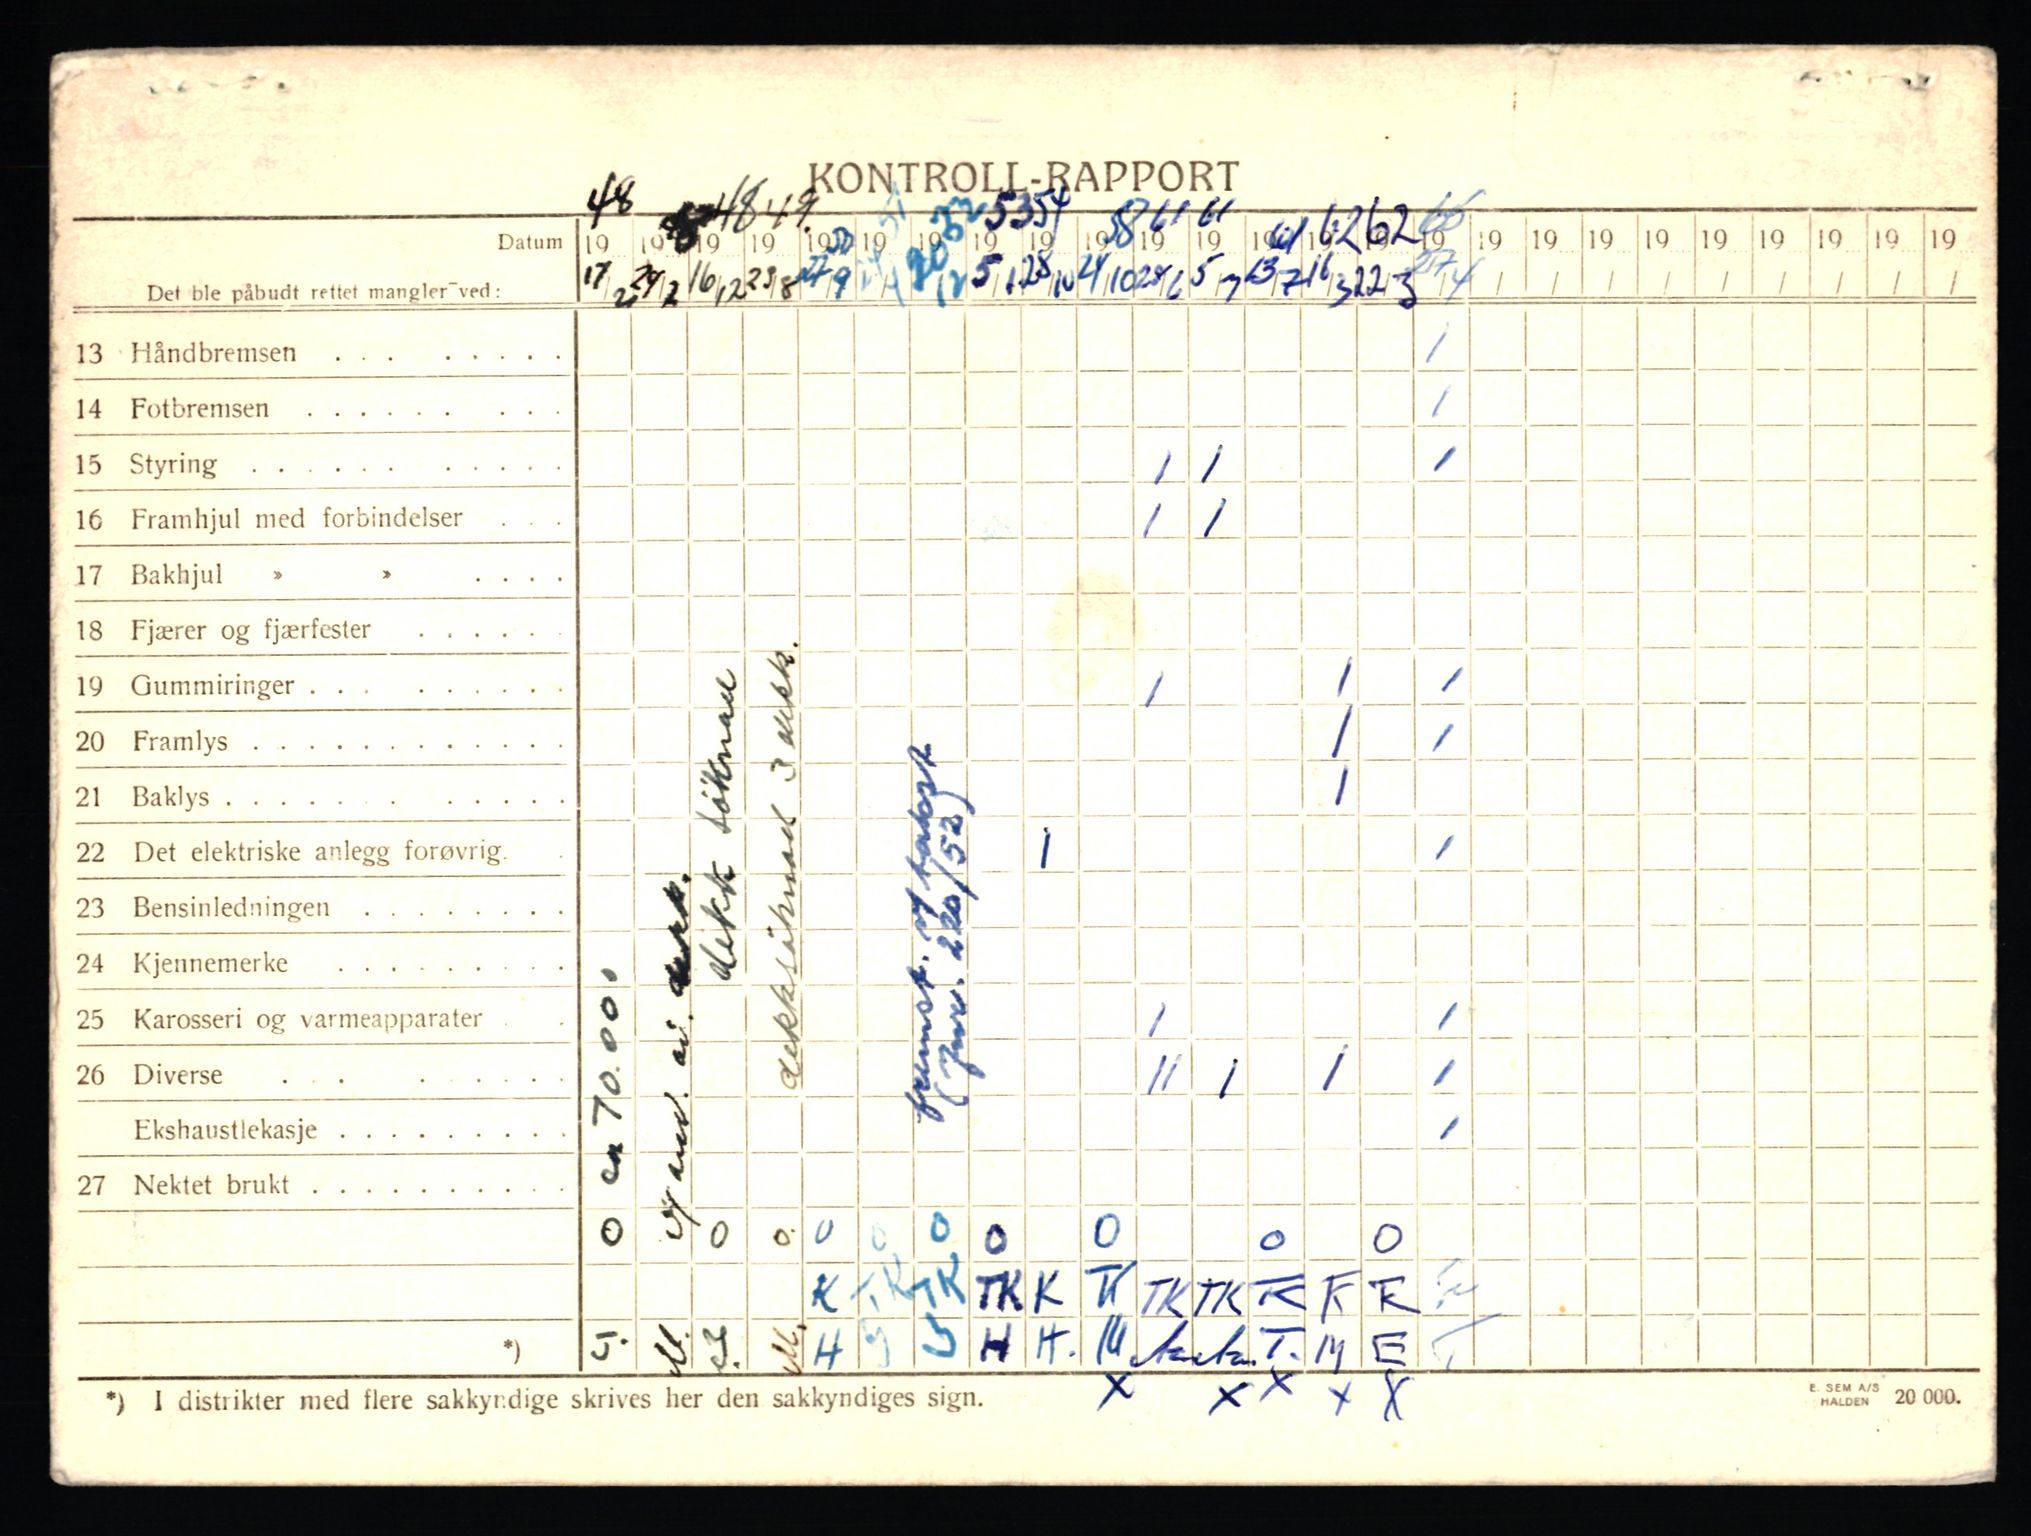 KONTROLL-RAPPORT
48 48 49. 50 51 52 53 54 58 61 61 61 62 62 66
Datum 19 19 19 19 19 19 19 19 19 19 19 19 19 19 19 19 19 19 19 19 19 19 19 19 19
Det ble påbudt rettet mangler ved: 17/2 24/2 16/12 23/8 27/9 20/12 5/1 28/10 24/10 28/6 5/7 13/7 16/3 22/3 27/4 / / / / / / / / /
13 Håndbremsen . . . . . . . . /
14 Fotbremsen . . . . . . . . . /
15 Styring . . . . . . . . . . / / /
16 Framhjul med forbindelser . . . / /
17 Bakhjul » » . . . .
18 Fjærer og fjærfester . . . . . .
19 Gummiringer . . . . . . . . . / / /
20 Framlys . . . . . . . . . . . . / /
21 Baklys . . . . . . . . . . . /
22 Det elektriske anlegg forøvrig. . / /
23 Bensinledningen . . . . . . . .
24 Kjennemerke . . . . . . . . .
25 Karosseri og varmeapparater . . / /
26 Diverse . . . . . . . . . // / / /
Ekshaustlekasje . . . . . . . . . /
27 Nektet brukt . . . . . . . . . .
ca 70.000.
dekk söknad
dekksöknad 3 dekk.
(Jnr. 220/52)
0 0 0. 0 0 0 0 0 0 0
K T.K TK TK K TK TK TK TK K K
*) M. M. H H H. M T. M E T
X X X X X
*) I distrikter med flere sakkyndige skrives her den sakkyndiges sign.
E. SEM A/S
HALDEN 20 000.